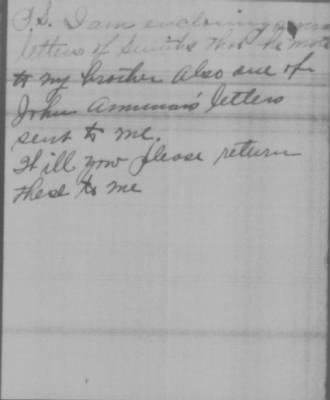 P.S. I am enclosing
letters of Smiths that he wrote
to my brother also one of
John letters
sent to me.
Will you please return
these to me